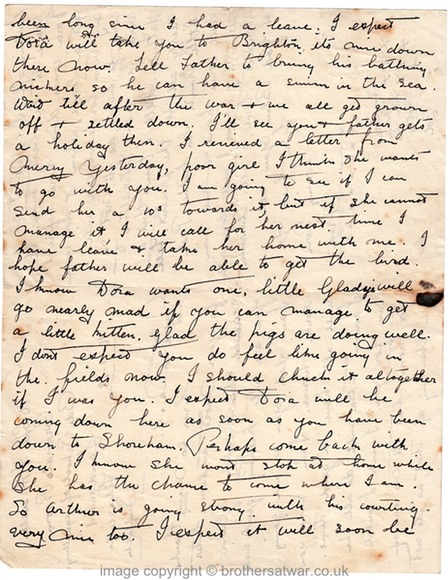 been long since I had a leave. I expect
Dora will take you to Brighton, its nice down
there now. Tell Father to bring his bathing
nickers, so he can have a swim in the sea.
Wait till after the war & we all get grown
off & settled down. I'll see you & father gets
a holiday then. I received a letter from
Mercy Yesterday, poor girl I think she wants
to go with you. I am going to see if I can
send her a 10s towards it, but if she cannot
manage it I will call for her next time I
have leave & take her home with me. I
hope father will be able to get the bird.
I know Dora wants one, little Gladys will
go nearly mad if you can manage to get
a little kitten. Glad the pigs are doing well.
I dont expect you do feel like going in
the fields now. I should chuck it altogether
if I was you. I expect Dora will be
coming down here as soon as you have been
down to Shoreham. Perhaps come back with
you. I know she wont stop at home while
she has the chance to come where I am.
So Arthur is going strong with his courting.
very nice too. I expect it will soon be
image copyright © brothersatwar.co.uk